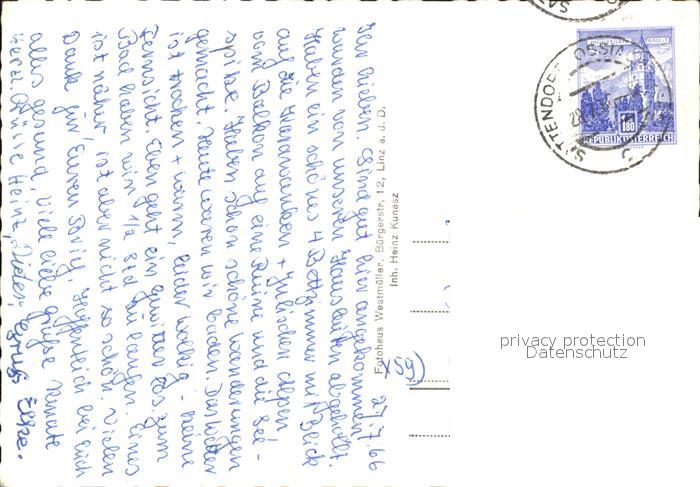 27.7.66
Ihr Lieben. Sind gut hier angekommen,
wurden von unseren Hausleuten abgeholt.
Haben ein schönes 4 Bettzimmer mit Blick
auf die Karawanken + Julischen Alpen
vom Balkon auf eine Ruine und die See-
spitze. Haben schon schöne Wanderungen
gemacht. Heute waren wir baden. Das Wetter
ist trocken + warm, leider wolkig - keine
Fernsicht. Eben geht ein Gewitter los. Zum
Bad haben wir 1/2 Std zu laufen. Eines
ist näher ist aber nicht so schön. Vielen
Dank für Euren Brief. Hoffentlich bei Euch
alles gesund, viele liebe Grüße Renate
Herzl. Grüsse Heinz, Dieter, Gruß Elke.
Fotohaus Westmüller, Bürgerstr. 12, Linz a. d. D.
Inh. Heinz Kunasz
x59)
SATTENDORF OSSIA
1.80
REPUBLIK ÖSTERREICH
privacy protection
Datenschutz